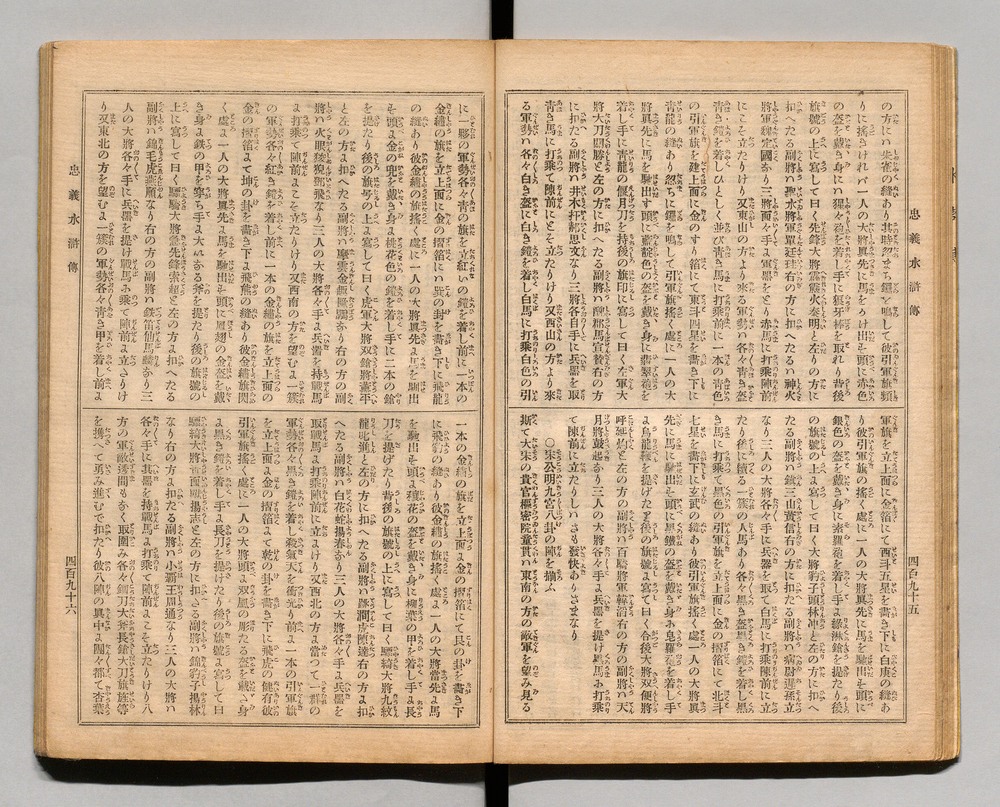 忠義水滸傳
四百九十五
の方に朱雀の縫あり其時忽まち鑼を鳴して彼引軍旗頻
りに搖ぎければ一人の大將眞先に馬をかけ出せ頭に赤色
の盔を戴き身に猩々袍を着し手に狼牙棒を取れり背後
旗號の上に寫して曰く先鋒大將霹靂火秦明と左の方に
扣へたる副將ハ聖水將軍單廷珪右の方に扣へたるハ神火
將軍魏定國なり三將面々手よ軍器をとり赤馬に打乘陣前
にこそ立たりけり又東山の方より來る軍勢ハ各々青き盔
青き鎧を着し青き馬に打乘前に一本の青色
の引軍旗を建上面に金のすり箔にて東斗四星を畵き下に
青龍の縫あり忽ちに鑼を鳴して引軍旗搖ぐ處に一人の大
將眞先に馬を騎出す頭に藍靛色の盔を戴き身に翡翠袍を
着し手に青龍の偃月刀を持後の旗印に寫して曰く左軍大
將大刀關勝と左の方に扣へたる副將ハ醜郡馬宣贊右の方
に扣たる副將ハ井木犴郝思文なり三將各自手に兵器を取
青き馬に打乘て陣前にこそ立たりけり又西山の方より來
る軍勢ハ各々白き盔に白き鎧を着し白馬に打乘白色の引
軍旗を立上面に金箔にて西斗五星を畵き下に白虎の縫あ
り彼引軍旗の搖ぐ處に一人の大將眞先に馬を騎出せ頭に
銀色の盔を戴き身に素羅袍を着し手よ綠沉鎗を提たり後
の旗號の上よ寫して曰く大將豹子頭林冲と左の方に扣へ
たる副將ハ鎮三山黄信右の方に扣たる副將ハ病尉遲孫立
なり三人の大將各々手に兵器を取て白馬に打乘陣前に立
たり後に續る一簇の人馬あり各々黒き盔黒き鎧を着し黒
き馬に打乘て黒色の引軍旗を立上面に金の摺箔にて北斗
七星を畵下に玄武の縫あり彼引軍旗搖ぐ處に一人の大將眞
先に馬に騎出せ頭に黒鐵の盔を戴き身に皂羅袍を着し手
よ提げたり後の旗號よ寫して曰く合後大將双鞭將
呼延灼と左の方の副將ハ百勝將軍韓滔右の方の副將ハ天
月將彭玘なり三人の大將各々手よ兵器を提げ黒馬よ打乘
て陣前に立たりしハさも發快ありさまなり
○宋公明九宮八卦の陣を擺ふ
斯て大宋の貴官樞密院童貫ハ東南の方の敵軍を望み見る
に一夥の軍勢各々青の旗を立紅いの鎧を着し前に一本の
金繡の旗を立上面に金の摺箔にハ巽の卦を畵き下に飛龍
の縫あり彼金繡の旗搖ぐ處に一人の大將眞先よ馬を騎出
せ頭よ金の兜を戴き身よ桃花色の鎧を着し手に二本の鎗
を提たり後の旗号の上よ寫して曰く虎軍大將双鎗將董平
と左の方よ扣へたる副將ハ摩雲金翅歐鵬なり右の方の副
將ハ火眼狻猊鄧飛なり三人の大將各々手よ兵器を持戰馬
よ打乘て陣前よこそ立たりけり又西南の方を望むよ一簇
の軍勢各々紅き鎧を着し前に一本の金繡の旗を立上面の
金の摺箔よて坤の卦を畵き下よ飛熊の縫あり彼金繡旗閃
く處よ一人の大將眞先よ馬を騎出せ頭に鳳翅の金盔を戴
き身よ鉄の甲を穿ち手よ大いなる斧を提たり後の旗號の
上に寫して曰く驃騎大將急先鋒索超と左の方よ扣へたる
副將ハ錦毛虎燕順なり右の方の副將ハ鉄笛仙馬麟なり三
人の大將各々手に兵器を提け戰馬よ乘て陣前よ立さりけ
り又東北の方を望むよ一簇の軍勢各々青き甲を着し前よ
一本の金繡の旗を立上面よ金の摺箔にて艮の卦を畵き下
に飛豹の縫あり彼金繡の旗搖ぐ處よ一人の大將當先よ馬
を騎出せ頭よ珠花の盔を戴き身に柳葉の甲を着し手よ長
刀を提げたり背後の旗號の上に寫して曰く驃騎大將九紋
龍史進と左の方に扣へたる副將ハ跳澗虎陳達右の方よ扣
へたる副將ハ白花蛇揚春なり三人の大將各々手よ兵器を
取戰馬よ打乘陣前に立よけり又西北の方よ當つて一群の
軍勢各々黒き鎧を着し殺氣天を衝光り前よ一本の引軍旗
を立上面よ金の摺箔よて乾の卦を畵き下に飛虎の縫有彼
引軍旗搖ぐ處に一人の大將頭よ双鳳の彫たる盔を戴き身
よ黒き鎧を着し手よ長刀を提けたり後の旗號よ寫して曰
驃騎大將青面獣揚志と左の方に扣さる副將ハ錦豹子揚林
なり右の方よ扣たる副將ハ小覇王周通なり三人の大將ハ
各々手に其器を持戰馬よ打乘て陣前よこそ立たりけり八
方の軍敵透間もなく取圍み各々鋼刀大斧長鎗大刀旗旌等
を携へて勇み進むて扣たり彼八陣の眞中よ團々都て杏黄
忠義水滸傳
四百九十六